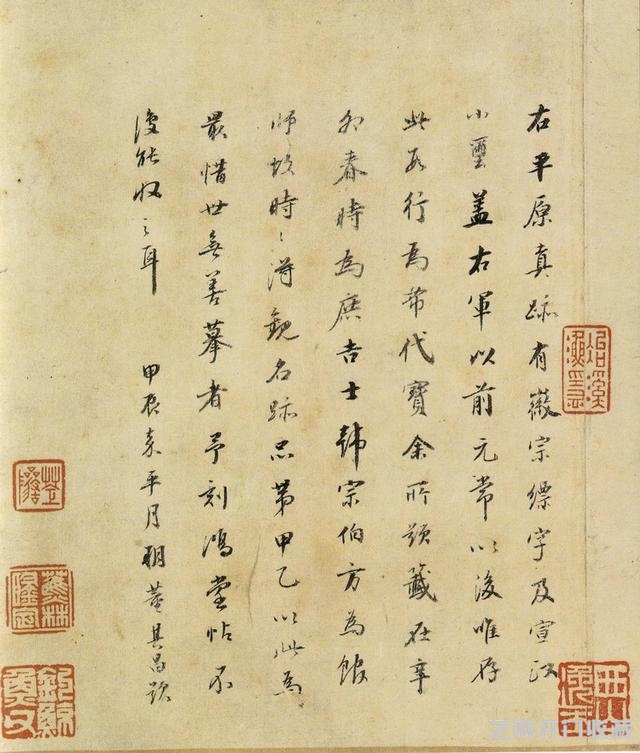 右平原真跡有徽宗縹字及宣政
小璽蓋右軍以前元常以後唯存
此數行為希代寶余所題籤在辛
卯春時為庶吉士韓宗伯方為館
師故時時得觀名跡品第甲乙以此為
最惜世無善摹者予刻鴻堂帖不
復能收之耳　甲辰嘉平月朔董其昌題
蕉林